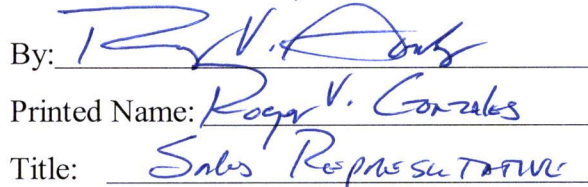 By: R V. Gonzales
Printed Name: Roger V. Gonzales
Title: Sales Representative